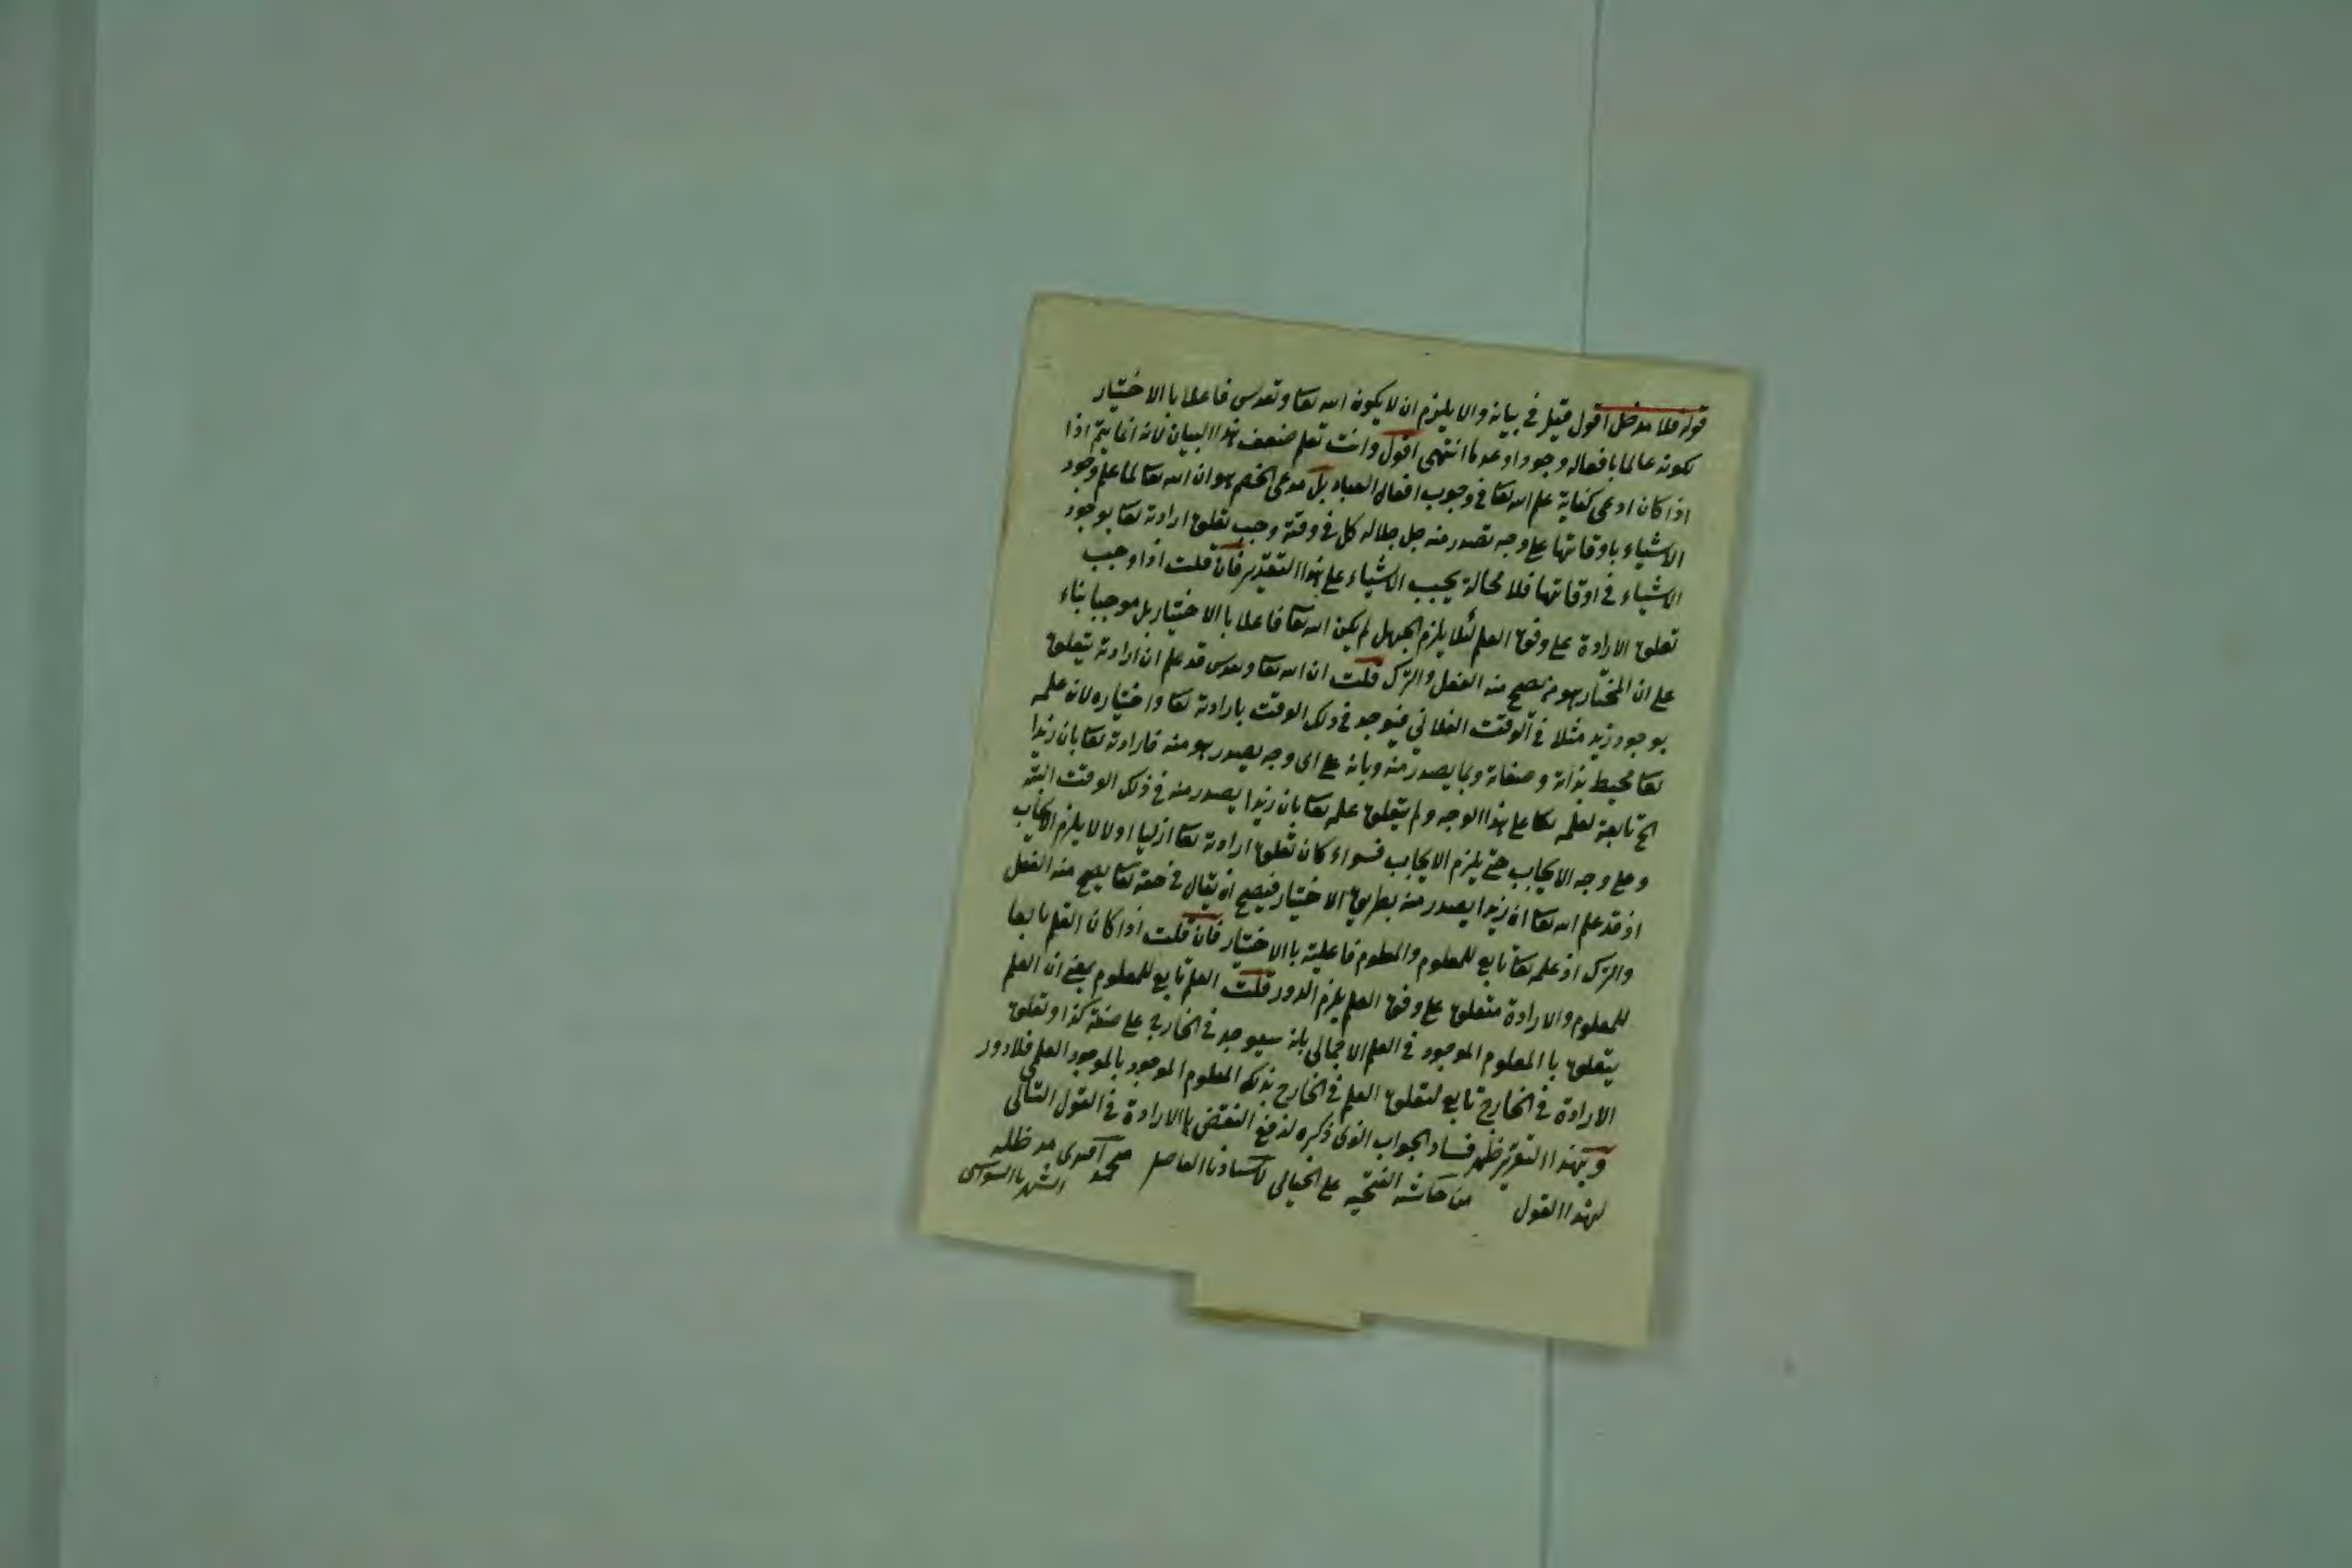 قوله فلا مدخل اقول قيل في بيانه والا يلزم ان لا يكون الله تعا وتقدس فاعلا بالاختيار
لكونه عالما بافعاله وجودا وعدما انتهى اقول وانت تعلم ضعف هذا البيان لانه انما يتم اذا
اذا كان ادعى كفاية علم الله تعا في وجوب افعال العباد بل مدعى الخصم هو ان الله تعا لما علم وجود
الاشياء باوقاتها على وجه تصدر منه جل جلاله كل في وقته وجب تعلق ارادته تعا بوجود
الاشياء في اوقاتها فلا محالة يجب الاشياء على هذا التقدير فان قلت اذا وجب
تعلق الارادة على وفق العلم لئلا يلزم الجهل لم يكن الله تعا فاعلا بالاختيار بل موجبا بناء
على ان المختار هو من يصح منه الفعل والترك قلت ان الله تعا وتقدس قد علم ان ارادته يتعلق
بوجود زيد مثلا في الوقت الفلاني فيوجد في ذلك الوقت بارادته تعا واختياره لان علمه
تعا محيط بذاته وصفاته وبما يصدر منه وبانه على اى وجه يصدر هو منه فارادته تعا بان زيدا
الخ تابعة لعلمه تعا على هذا الوجه ولم يتعلق علمه تعا بان زيدا يصدر منه في ذلك الوقت البتة
وعلى وجه الايجاب حتى يلزم الايجاب فسواء كان تعلق ارادته تعا ازليا اولا لا يلزم الايجاب
اذ قد علم الله تعا ان زيدا يصدر منه بطريق الاختيار فيصح ان يقال في حقه تعا يصح منه الفعل
والترك اذ علمه تعا تابع للمعلوم والمعلوم فاعليته بالاختيار فان قلت اذا كان العلم تابعا
للمعلوم والارادة متعلق على وفق العلم يلزم الدور قلت العلم تابع للمعلوم بمعنى ان العلم
يتعلق با المعلوم الموجود في العلم الاجمالى بانه سيوجد في الخارج على صفة كذا وتعلق
الارادة في الخارج تابع لتعلق العلم في الخارج بذلك المعلوم الموجود بالموجود العلمى فلا دور
وبهذا التقرير ظهر فساد الجواب الذى ذكره لدفع النقض بالارادة في القول التالى
لهذا القول من حاشية الفتحيه على الخيالى لاستاذنا الفاضل محمد افندى مد ظله
الشهير بالسواسى